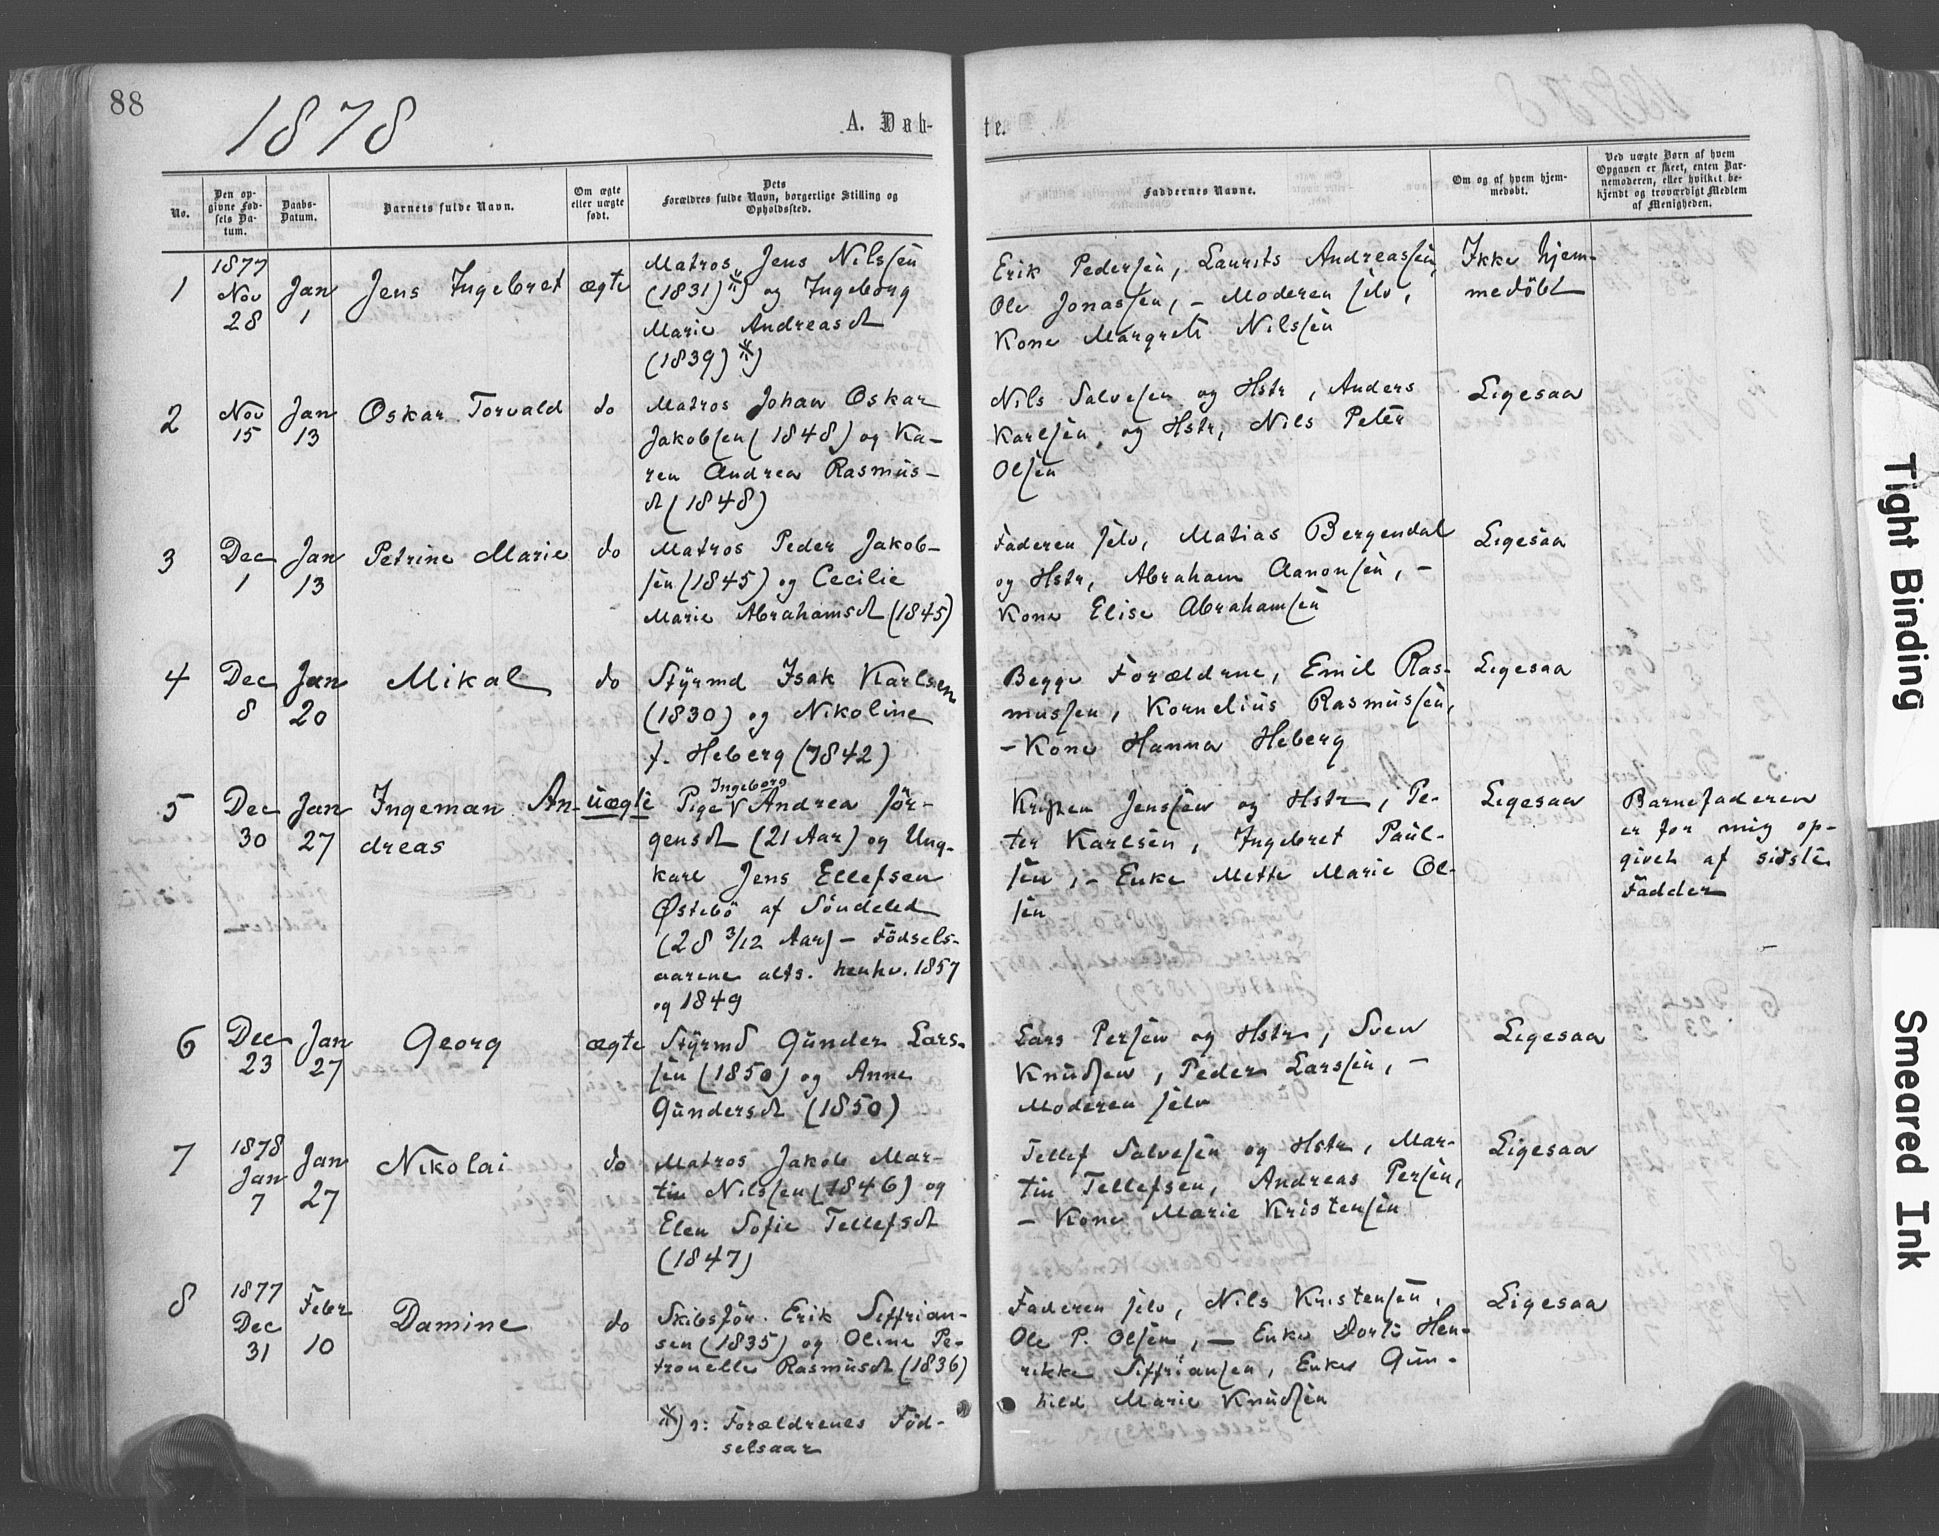 88
1878
A. Døb-
te.
No.
Den op-
givne Fød-
sels Da-
tum.
Daabs-
Datum.
Barnets fulde Navn.
Om ægte
eller uægte
født.
Dets
Forældres fulde Navn, borgerlige Stilling og
Opholdssted.
Faddernes Navne.
Om og af hvem hjem-
medøbt.
Ved uægte Børn af hvem
Opgaven er skeet, enten Bar-
nemoderen, eller hvilket be-
kjendt og troværdigt Medlem
af Menigheden.
1
1877
Nov
28
Jan
1
Jens Ingebret
ægte
Matros Jens Nilssen
(1831)*) og Ingeborg
Marie Andreasdt
(1839)*)
Erik Pedersen, Laurits Andreassen,
Ole Jonassen, - Moderen selv,
Kone Margrete Nilssen
Ikke hjem-
medøbt
2
Nov
15
Jan
13
Oskar Torvald
do
Matros Johan Oskar
Jakobsen (1848) og Ka-
ren Andrea Rasmus-
dt (1848)
Nils Salvesen og Hstr, Anders
Karlsen og Hstr, Nils Peter
Olsen
Ligesaa
3
Dec
1
Jan
13
Petrine Marie
do
Matros Peder Jakob-
sen (1845) og Cecilie
Marie Abrahamsdt (1845)
Faderen selv, Matias Bergendal
og Hstr, Abraham Aanonsen, -
Kone Elise Abrahamsen
Ligesaa
4
Dec
8
Jan
20
Mikal
do
Styrmd Isak Karlsen
(1830) og Nikoline
f. Heberg (1842)
Begge Forældrne, Emil Ras-
mussen, Kornelius Rasmussen,
- Kone Hanna Heberg
Ligesaa
5
Dec
30
Jan
27
Ingeman An-
dreas
uægte
Ingeborg
Pige V Andrea Jör-
gensdt (21 Aar) og Ung-
karl Jens Ellefsen
Østebö af Söndeled
(28 3/12 Aar) - Födsels-
aarene alts. henhv. 1857
og 1849
Kristen Jenssen og Hstr, Pe-
ter Karlsen, Ingebret Paul-
sen, - Enke Mette Marie Ol-
sen
Ligesaa
Barnefaderen
er for mig op-
givet af sidste
Fadder
6
Dec
23
Jan
27
Georg
ægte
Styrmd Gunder Lars-
sen (1850) og Anne
Gundersdt (1850)
Lars Persen og Hstr, Sven
Knudsen, Peder Larssen, -
Moderen selv
Ligesaa
7
1878
Jan
7
Jan
27
Nikolai
do
Matros Jakob Mar-
tin Nilssen (1846) og
Elen Sofie Tellefsdt
(1847)
Tellef Salvesen og Hstr, Mar-
tin Tellefsen, Andreas Persen,
- Kone Marie Kristensen
Ligesaa
8
1877
Dec
31
Febr
10
Damine
do
Skibsför. Erik Siffrian-
sen (1835) og Oline Pe-
tronelle Rasmusdt (1836)
Faderen selv, Nils Kristensen,
Ole P. Olsen, - Enke Dorte Hen-
rikke Siffriansen, Enke Gun-
hild Marie Knudsen
Ligesaa
*) ɔ: Forældrenes Föd-
selsaar
Tight Binding
Smeared Ink